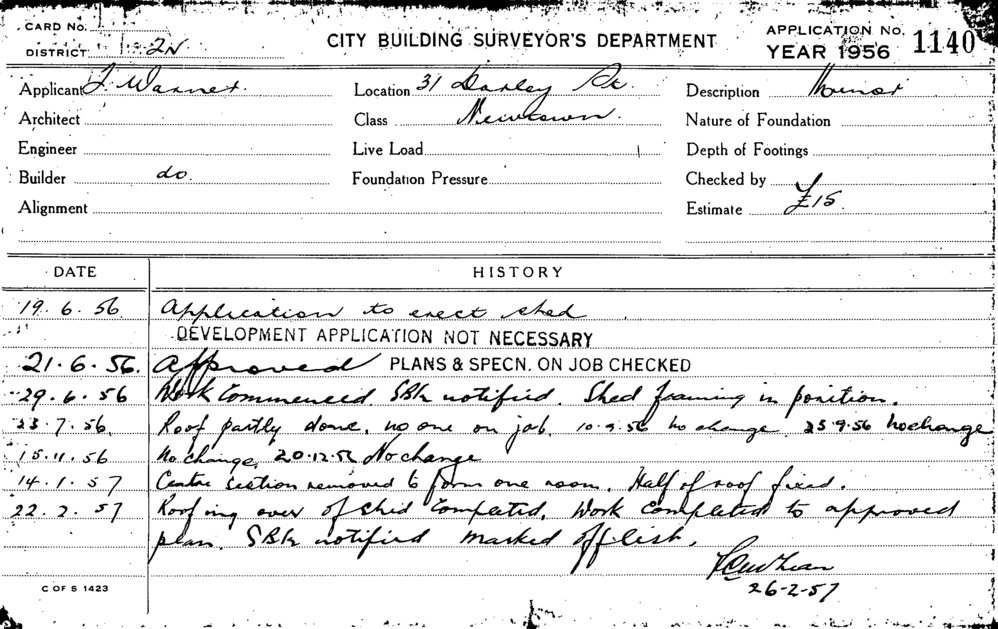 CARD No.
DISTRICT 2N
CITY BUILDING SURVEYOR'S DEPARTMENT
APPLICATION No.
YEAR 1956 1140
Applicant J Warner. Location 31 Darley St. Description Minor
Architect Class Newtown. Nature of Foundation
Engineer Live Load Depth of Footings
Builder do. Foundation Pressure Checked by
Alignment Estimate £15.
DATE HISTORY
19. 6. 56 Application to erect shed
DEVELOPMENT APPLICATION NOT NECESSARY
21. 6. 56. Approved PLANS & SPECN. ON JOB CHECKED
29. 6. 56 Work Commenced. notified. Shed framing in position.
23. 7. 56. Roof partly done, no one on job. 10.9.56 no change 25 9.56 No change
15.11.56 No change. 20.12.56 No change
14. 1. 57 Centre section removed to form one room. Half of roof fixed.
22. 2. 57 Roofing over of shed Completed. Work Completed to approved
plan. notified marked off list.
26-2-57
C OF S 1423